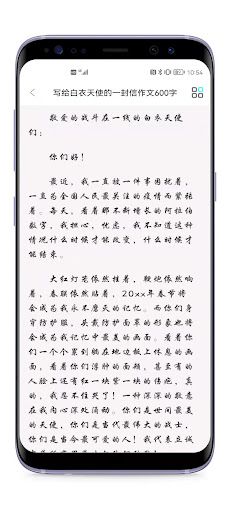 10:54
写给白衣天使的一封信作文600字
敬爱的战斗在一线的白衣天使
们：
你们好！
最近，我一直被一件事困扰着，
一直为全国人民最关注的疫情而紧皱
着。每天，看着那不断增长的阿拉伯
数字，我担心，忧虑，我不知道这种
情况什么时候才能改变，什么时候才
能结束。
大红灯笼依然挂着，鞭炮依然响
着，春联依然贴着，20xx年春节将
会成为我永不磨灭的记忆。而你们身
穿防护服，头戴防护面罩的形象也将
会成为我们记忆中最美的画面。看着你
们一个个累到躺在地边板上休息的画
面，看着你们浮肿的面颊，甚至有的
人脸上还有红一块紫一块的伤疤，真
的，我忍不住哭了！一种深深的敬意
在我内心深处涌动。你们是世间最美
的天使，你们是当代最伟大的战士，
你们是当今最可爱的人！我代表立诚